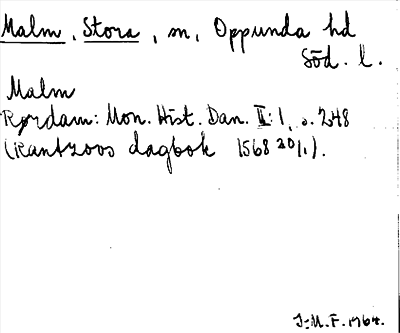 Malm, Stora, m, Oppunda hd
Söd. l.
Malm
Rørdam: Mon. Hist. Dan. II: 1, s. 248
(Rantzovs dagbok 1568 20/1).
J.M.F. 1964.